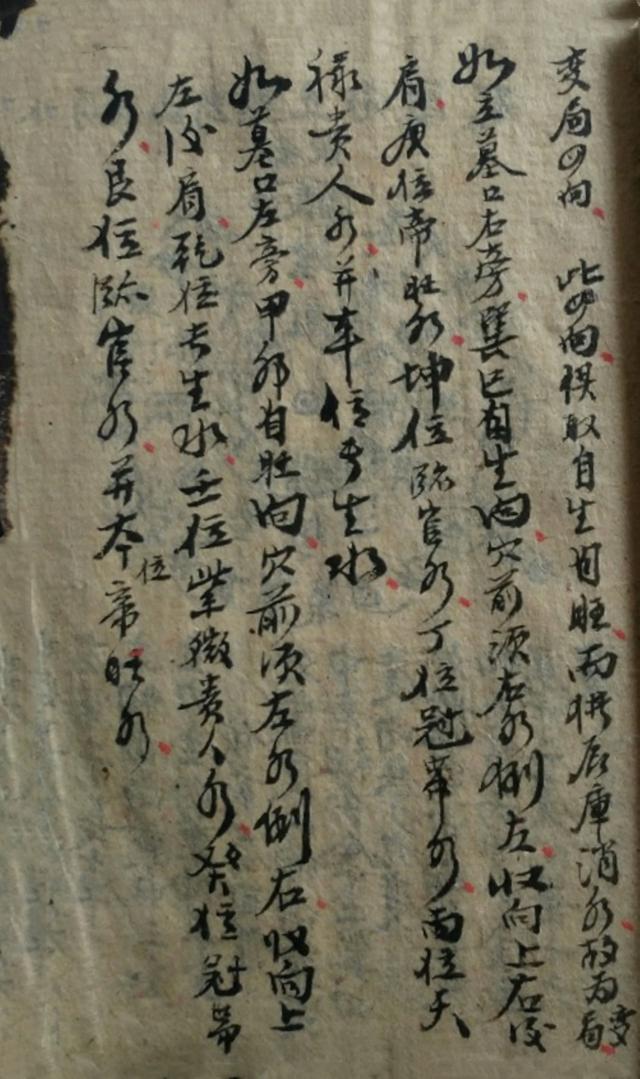 变局四向 此四向棋取自生自旺而拱辰庫消水故为变局
如立墓口右旁巽巳自生向穴前须右水倒左收向上右後
肩庚位帝旺水坤位臨官水丁位冠帶水丙位天
禄貴人水并本位長生水
如墓口左旁甲卯自旺向穴前须左水倒右收向上
左後肩乾位長生水壬位紫微貴人水癸位冠帶
水艮位臨官水并本位帝旺水